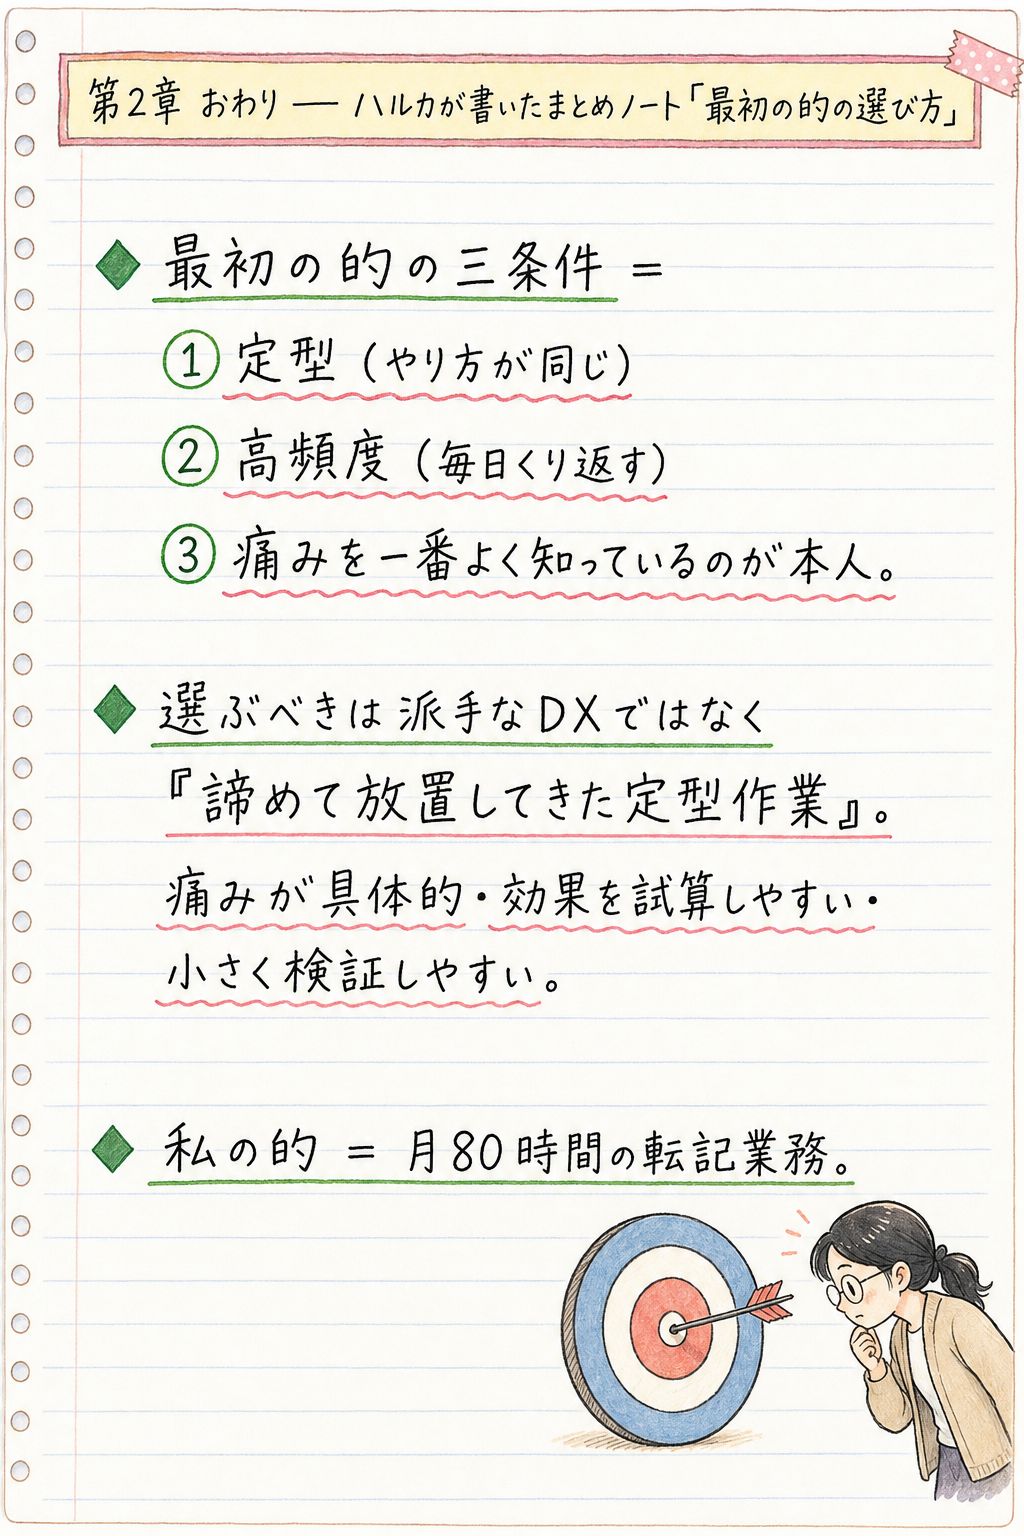 第2章 おわり ― ハルカが書いたまとめノート「最初の的の選び方」
◆ 最初の的の三条件 =
① 定型 (やり方が同じ)
② 高頻度 (毎日くり返す)
③ 痛みを一番よく知っているのが本人。
◆ 選ぶべきは派手なDXではなく
『諦めて放置してきた定型作業』。
痛みが具体的・効果を試算しやすい・
小さく検証しやすい。
◆ 私の的 = 月80時間の転記業務。